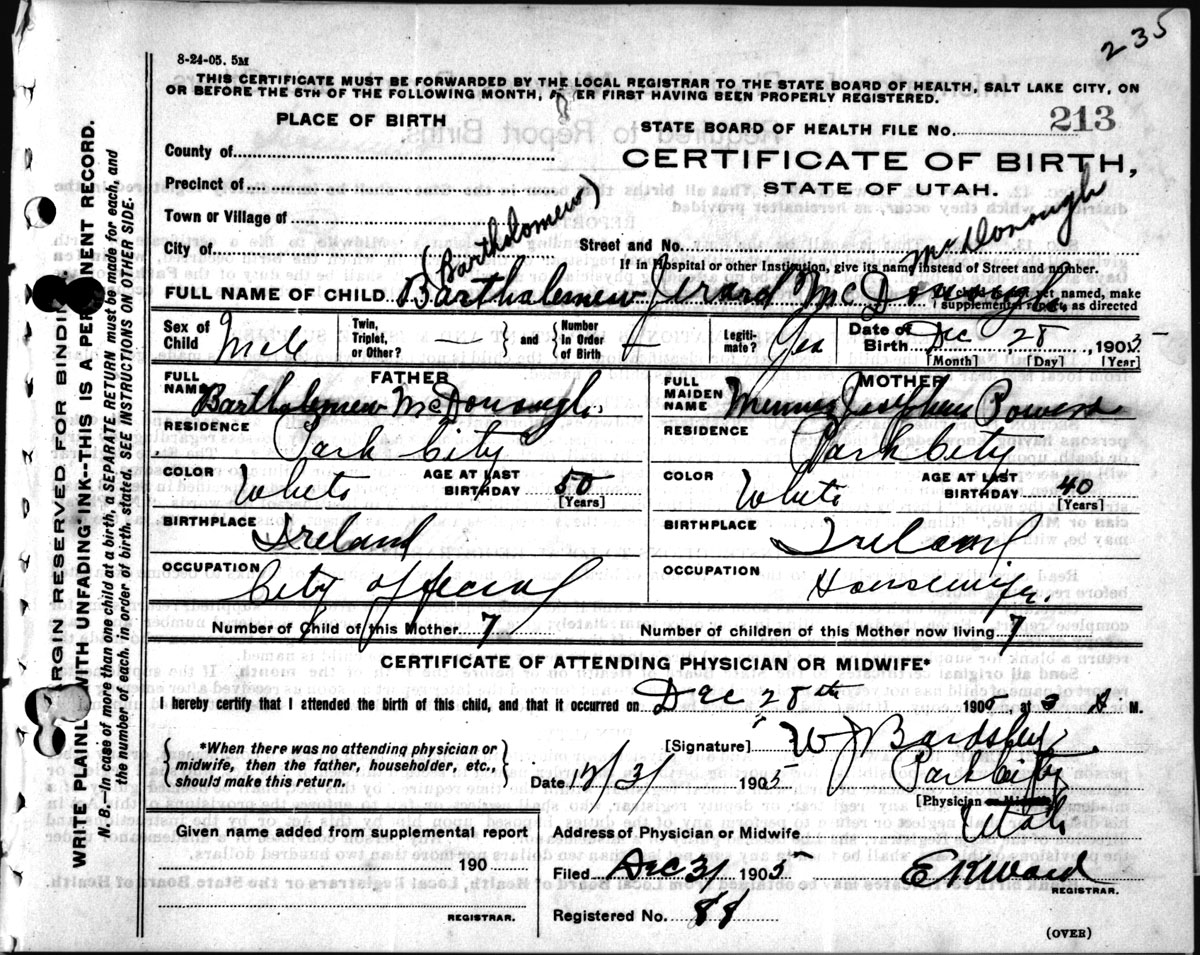 235
8-24-05. 5M
THIS CERTIFICATE MUST BE FORWARDED BY THE LOCAL REGISTRAR TO THE STATE BOARD OF HEALTH, SALT LAKE CITY, ON
OR BEFORE THE 5TH OF THE FOLLOWING MONTH, ER FIRST HAVING BEEN PROPERLY REGISTERED.
PLACE OF BIRTH
STATE BOARD OF HEALTH FILE NO. 213
County of
CERTIFICATE OF BIRTH,
Precinct of
STATE OF UTAH.
Town or Village of
City of
Street and No.
(Bartholomew) McDonough
If in Hospital or other Institution, give its name instead of Street and number.
FULL NAME OF CHILD Barthalemew Jerard McDonough
If child is not yet named, make
supplemental report, as directed
Sex of Child Male
Twin, Triplet, or Other? — — and Number in Order of Birth
Legitimate? Yes
Date of Birth Dec 28, 1905
[Month] [Day] [Year]
FATHER
FULL NAME Barthalemew McDonough
MOTHER
FULL MAIDEN NAME Josephine Powers
RESIDENCE Park City
RESIDENCE Park City
COLOR White AGE AT LAST BIRTHDAY 50 [Years]
COLOR White AGE AT LAST BIRTHDAY 40 [Years]
BIRTHPLACE Ireland
BIRTHPLACE Ireland
OCCUPATION City Official
OCCUPATION Housewife
Number of Child of this Mother 7
Number of children of this Mother now living 7
CERTIFICATE OF ATTENDING PHYSICIAN OR MIDWIFE*
I hereby certify that I attended the birth of this child, and that it occurred on Dec 28th 1905, at M.
*When there was no attending physician or
midwife, then the father, householder, etc.,
should make this return.
[Signature] W J Bardsley
Park City
Date 12/31 1905
[Physician
Utah
Given name added from supplemental report
190
REGISTRAR.
Address of Physician or Midwife
Filed Dec 31 1905 E K Ward
REGISTRAR.
Registered No. 88
(OVER)
MARGIN RESERVED FOR BINDING
WRITE PLAINLY WITH UNFADING INK--THIS IS A PERMANENT RECORD.
N. B.—In case of more than one child at a birth, a SEPARATE RETURN must be made for each, and
the number of each, in order of birth, stated. SEE INSTRUCTIONS ON OTHER SIDE.